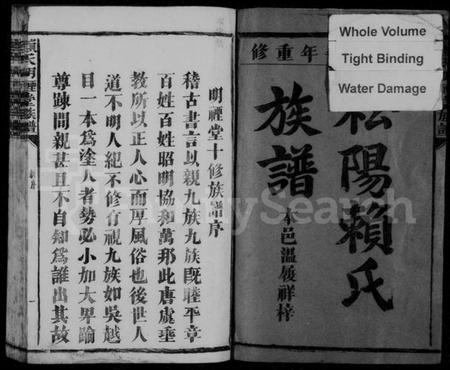 Whole Volume
Tight Binding
Water Damage
年重修
松陽賴氏
族譜
本邑溫屐祥梓
明禋堂十修族譜序
稽古書言以親九族九族既睦平章
百姓百姓昭明協和萬邦此唐虞垂
教所以正人心而厚風俗也後世人
道不明人紀不修有視九族如吳越
目一本為塗人者勢必小加大界踰
尊踈間親甚且不自知為誰出其故
MySearch